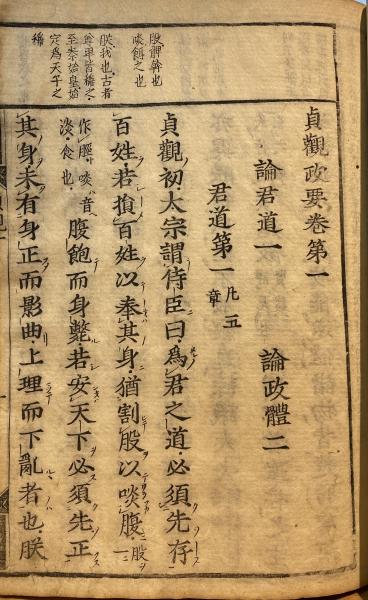 股髀也
啖之也
朕我也古者
尊卑皆稱之
至秦始皇始
定爲天子之
稱
貞觀政要卷第一
論君道一　論政體二
君道第一 凡五章
貞觀初太宗謂侍臣曰爲君之道必須先存
百姓若損百姓以奉其身猶割股以啖腹 股一
作脛啖音淡食也 腹飽而身斃若安天下必須先正
其身未有身正而影曲上理而下亂者也朕